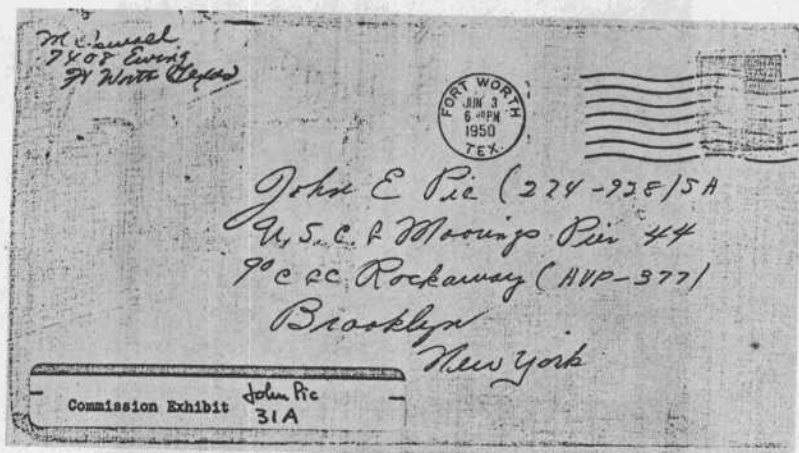 M Oswald
7408 Ewing
Ft Worth Texas
FORT WORTH
JUN 3
6 PM
1950
TEX.
John E Pic (274-928) SA
U.S.C.G Moorings Pier 44
% CGC Rockaway (AVP-377)
Brooklyn
New York
Commission Exhibit John Pic
31A